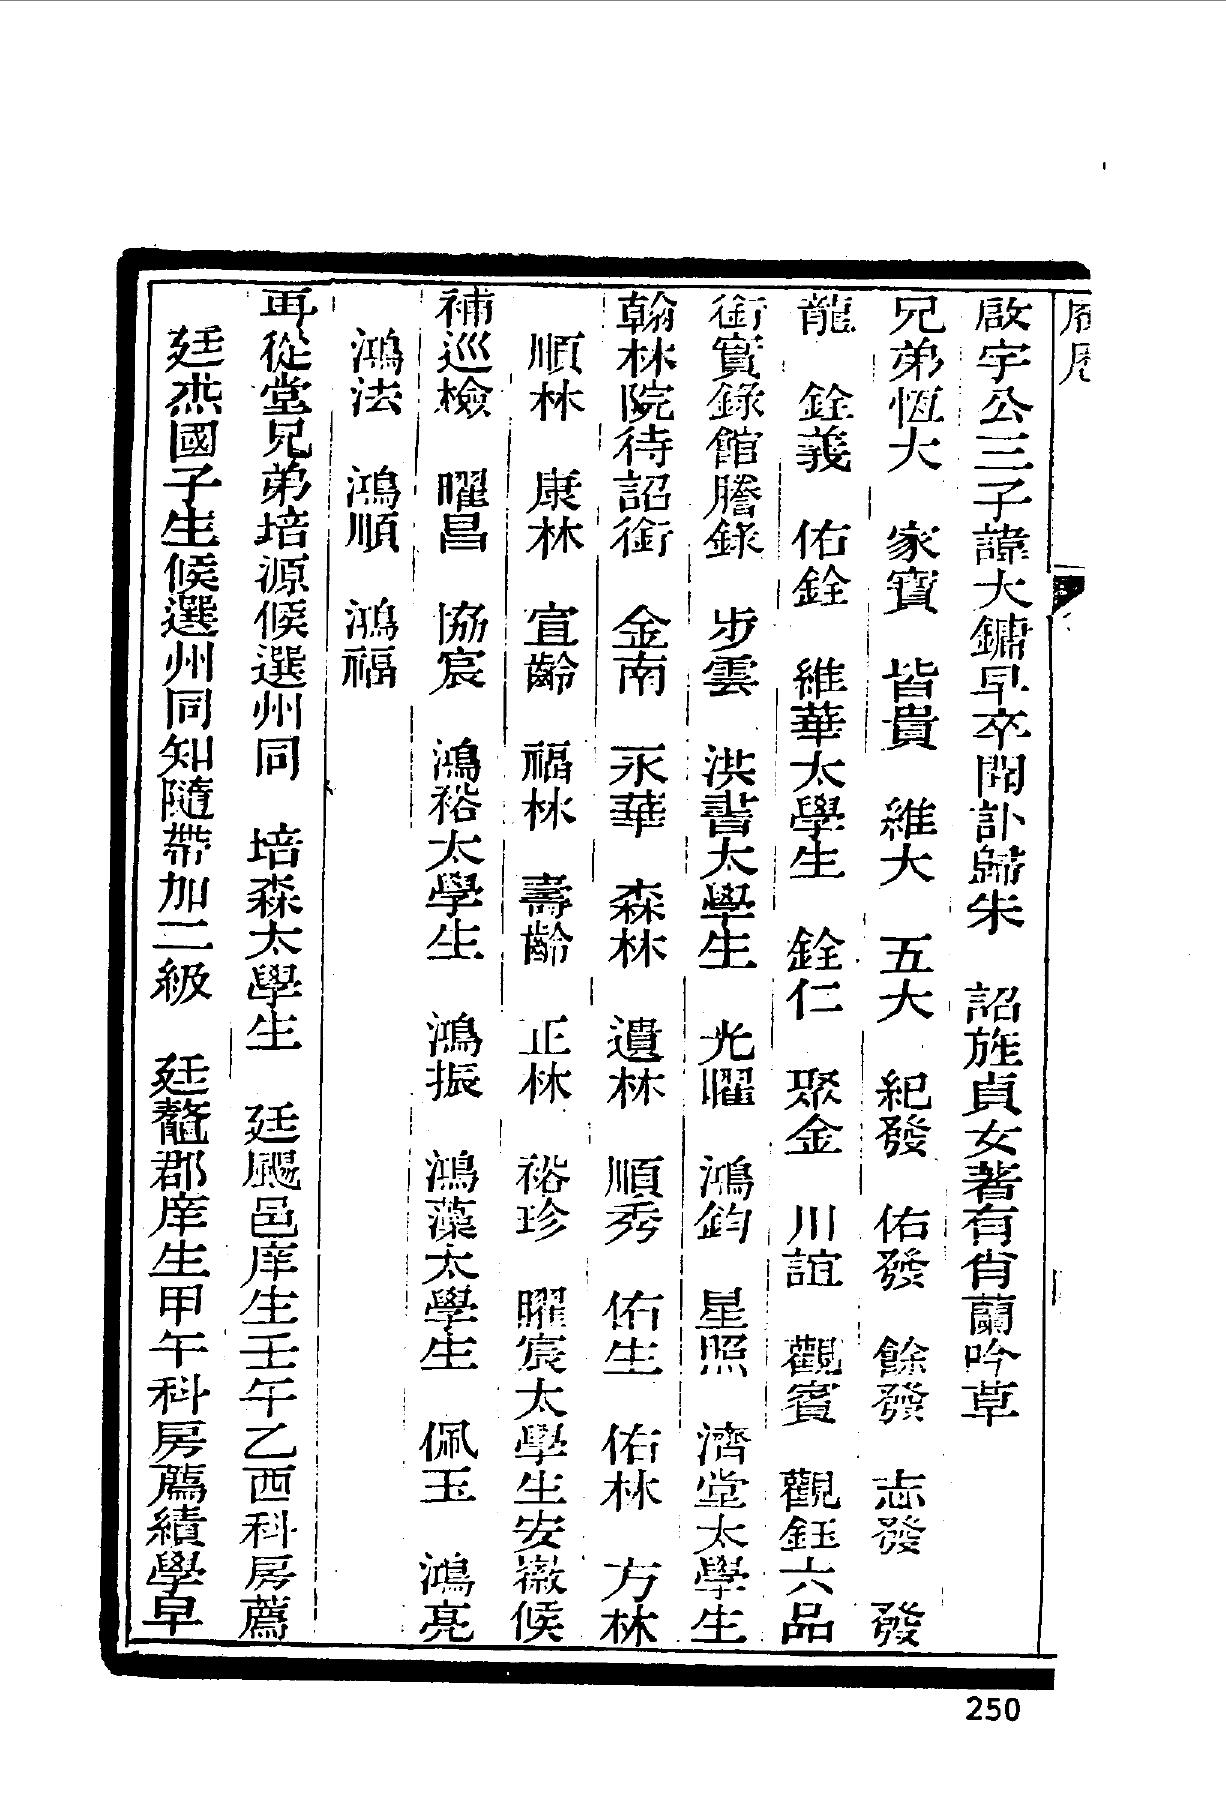 啟宇公三子諱大鏞早卒聞訃歸朱　詔旌貞女著有肖蘭吟草
兄弟恆大　家寶　皆貴　維大　五大　紀發　佑發　餘發　志發　發
龍　銓義　佑銓　維華太學生　銓仁　聚金　川誼　觀賓　觀鈺六品
銜實錄館謄錄　步雲　洪書太學生　光曜　鴻鈞　星照　濟堂太學生
翰林院待詔銜　金南　永華　森林　遺林　順秀　佑生　佑林　方林
順林　康林　宣齡　福林　壽齡　正林　裕珍　曜宸太學生安徽候
補巡檢　曜昌　協宸　鴻裕太學生　鴻振　鴻藻太學生　佩玉　鴻亮
鴻法　鴻順　鴻福
再從堂兄弟培源候選州同　培森太學生　廷颺邑庠生壬午乙酉科房薦
廷杰國子生候選州同知隨帶加二級　廷鼇郡庠生甲午科房薦績學早
250